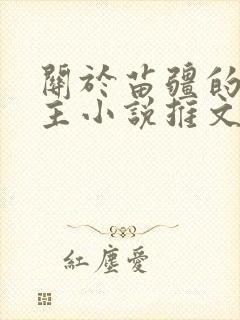 關於苗疆的
主小說推文
紅塵愛